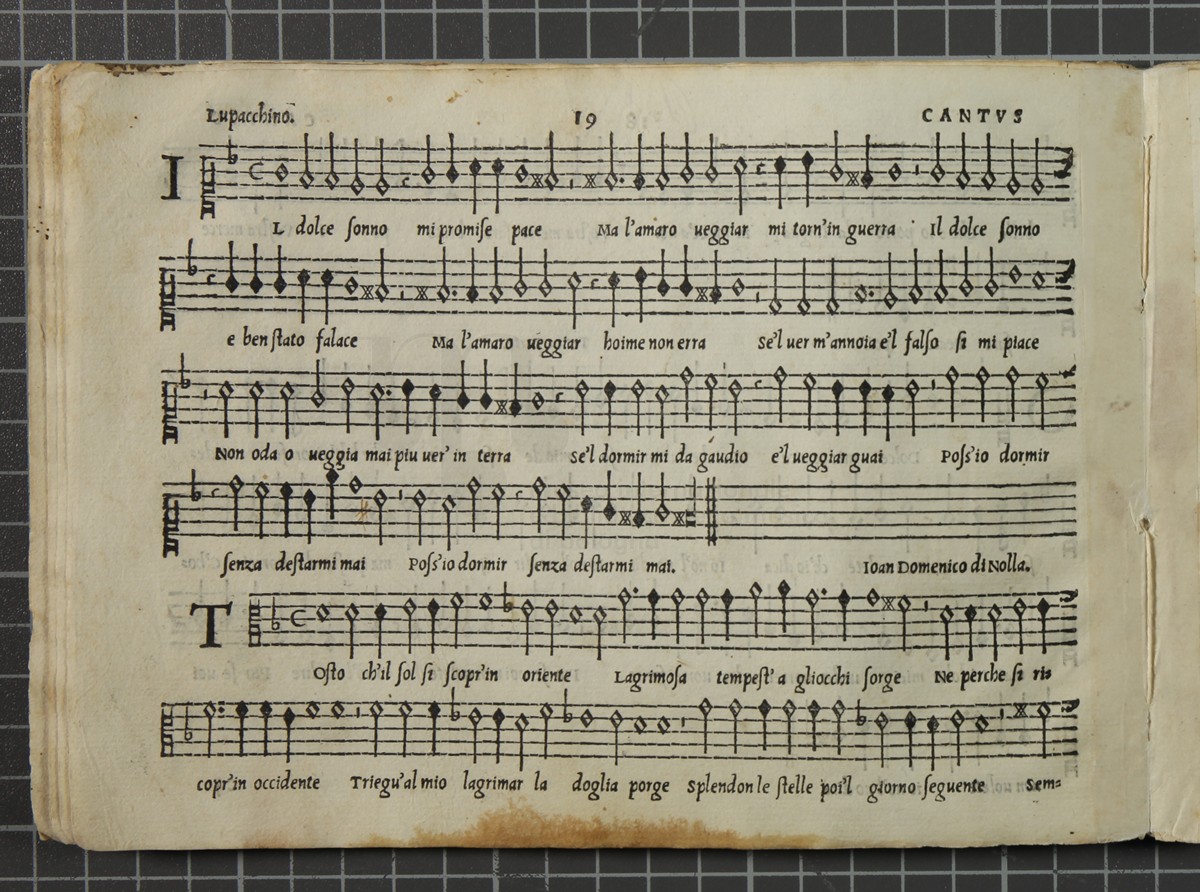 Lupacchino. 19 CANTVS
IL dolce ſonno mi promiſe pace Ma l'amaro ueggiar mi torn'in guerra Il dolce ſonno
e ben ſtato falace Ma l'amaro ueggiar hoime non erra Se'l uer m'annoia e'l falſo ſi mi piace
Non oda o ueggia mai piu uer' in terra Se'l dormir mi da gaudio e'l ueggiar guai Poſs'io dormir
ſenza deſtarmi mai Poſs'io dormir ſenza deſtarmi mai. Ioan Domenico di Nolla.
TOſto ch'il ſol ſi ſcopr'in oriente Lagrimoſa tempeſt'a gliocchi ſorge Ne perche ſi riſ=
copr'in occidente Triegu'al mio lagrimar la doglia porge Splendon le ſtelle poi'l giorno ſeguente Sem=